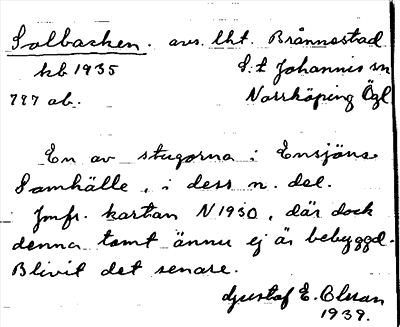 Solbacken. avs. lht. Brånnestad
kb 1935 S:t Johannis sn
797 ab. Norrköping Ögl
En av stugorna i Ensjöns
Samhälle, i dess n. del.
Jmfr. kartan N 1930, där dock
denna tomt ännu ej är bebyggd.
Blivit det senare.
Gustaf E. Olsson
1939.